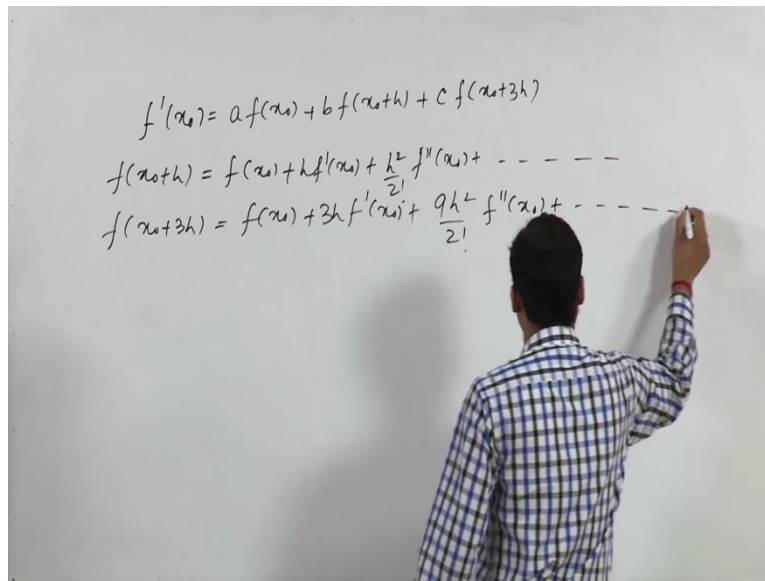 f'(x₀) = a f(x₀) + b f(x₀+h) + c f(x₀+3h)
f(x₀+h) = f(x₀) + hf'(x₀) + h²/2! f''(x₀) + - - - - -
f(x₀+3h) = f(x₀) + 3h f'(x₀) + 9h²/2! f''(x₀) + - - - - - -